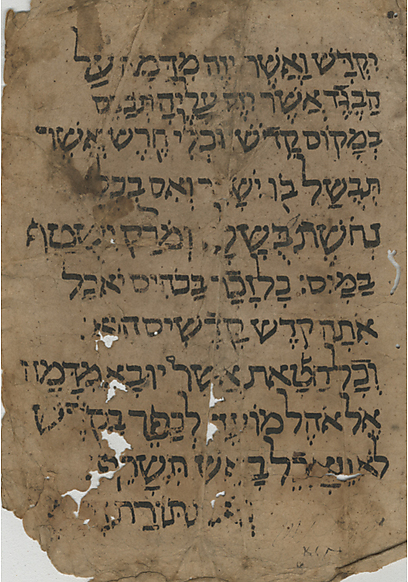 יִקְדָּשׁ וַאֲשֶׁר יִזֶּה מִדָּמָהּ עַל
הַבֶּגֶד אֲשֶׁר יִזֶּה עָלֶיהָ תְּכַבֵּס
בְּמָקוֹם קָדֹשׁ וּכְלִי חֶרֶשׂ אֲשֶׁר
תְּבֻשַּׁל בּוֹ וְאִם
נְחֹשֶׁת בֻּשָּׁלָה וּמֹרַק וְשֻׁטַּף
בַּמָּיִם׃ כָּל זָכָר בַּכֹּהֲנִים יֹאכַל
אֹתָהּ קֹדֶשׁ קָדָשִׁים
וְכָל חַטָּאת אֲשֶׁר יוּבָא מִדָּמָהּ
אֶל אֹהֶל מוֹעֵד לְכַפֵּר
לֹא תִּשָּׂרֵף
תּוֹרַת